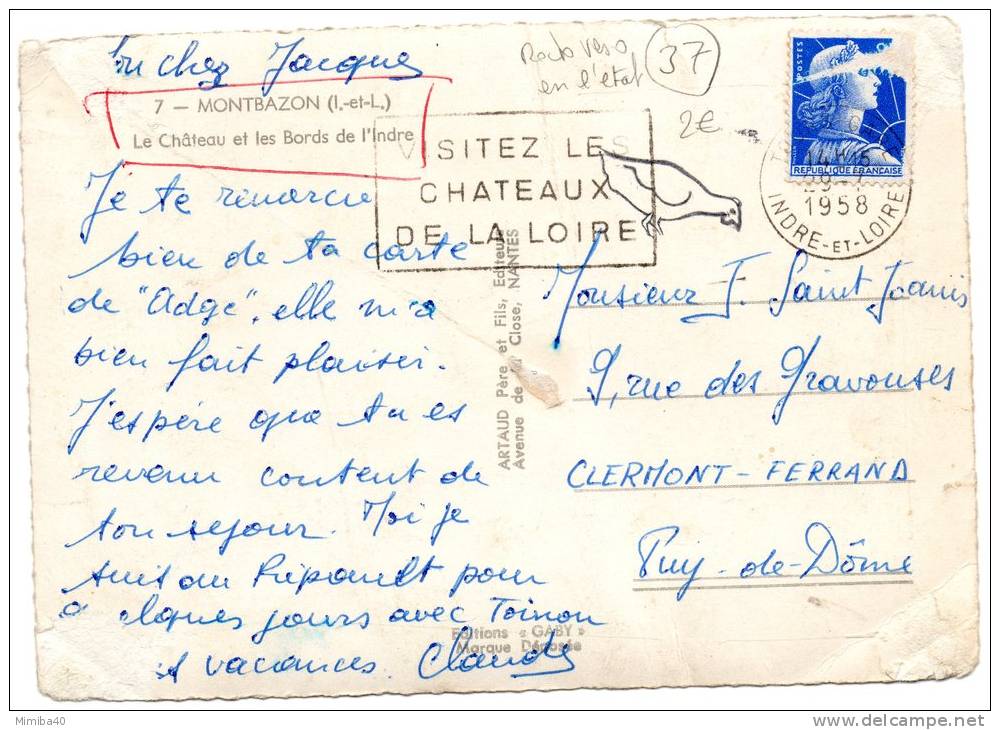 Mon cher Jacques
7 — MONTBAZON (I.-et-L.)
Le Château et les Bords de l'Indre
Je te remercie
bien de ta carte
de "Adge", elle m'a
bien fait plaisir.
J'espère que tu es
revenu content de
ton séjour. Moi je
suis au Ripault pour
quelques jours avec Toinon
vacances. Claude
Recto verso
en l'état
37
2€
VISITEZ LES
CHATEAUX
DE LA LOIRE
POSTES
REPUBLIQUE FRANÇAISE
14H15
1958
INDRE-ET-LOIRE
ARTAUD Père et Fils, Editeurs
Avenue de la Close, NANTES
Monsieur F. Saint Joanis
9, rue des Gravouses
CLERMONT-FERRAND
Puy-de-Dôme
Editions « GABY »
Marque Déposée
Mimiba40
delcampe.net